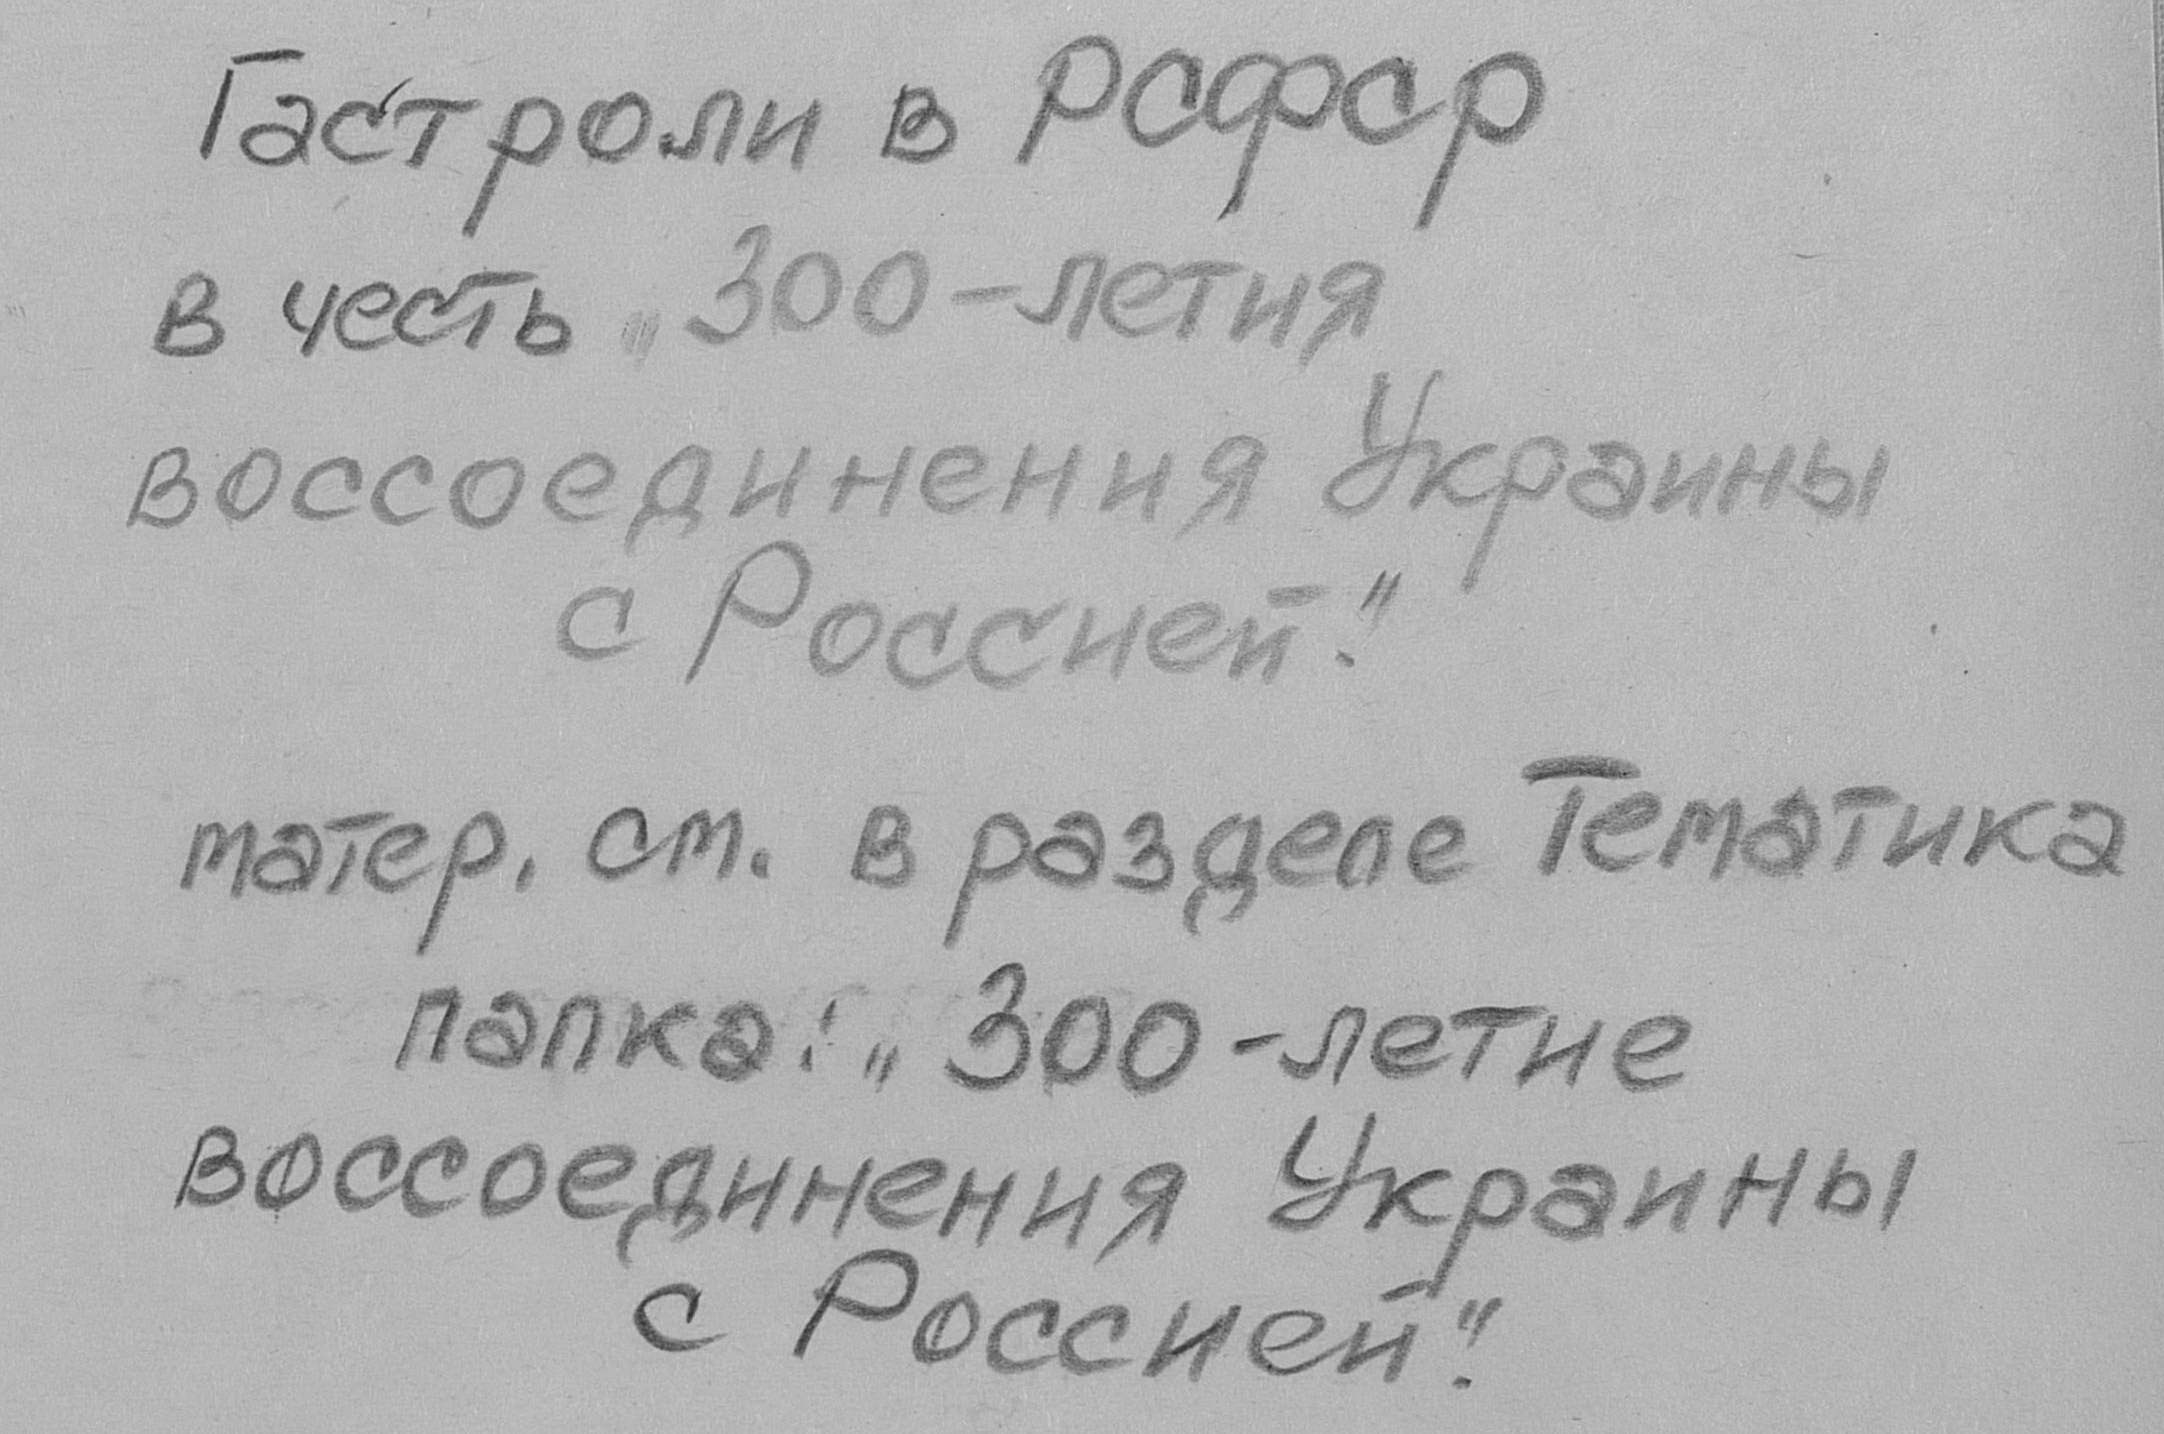 Гастроли в РСФСР
в честь „300-летия
воссоединения Украины
с Россией".
матер. см. в разделе Тематика
папка: „300-летие
воссоединения Украины
с Россией".